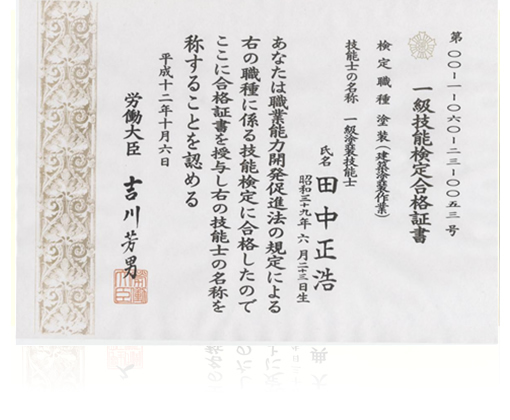 第〇〇-一-〇六〇-二三-〇〇五三号
一級技能検定合格証書
検定職種 塗装(建築塗装作業)
技能士の名称 一級塗装技能士
氏名 田中正浩
昭和三十九年六月二十三日生
あなたは職業能力開発促進法の規定による
右の職種に係る技能検定に合格したので
ここに合格証書を授与し右の技能士の名称を
称することを認める
平成十二年十月六日
労働大臣 吉川芳男